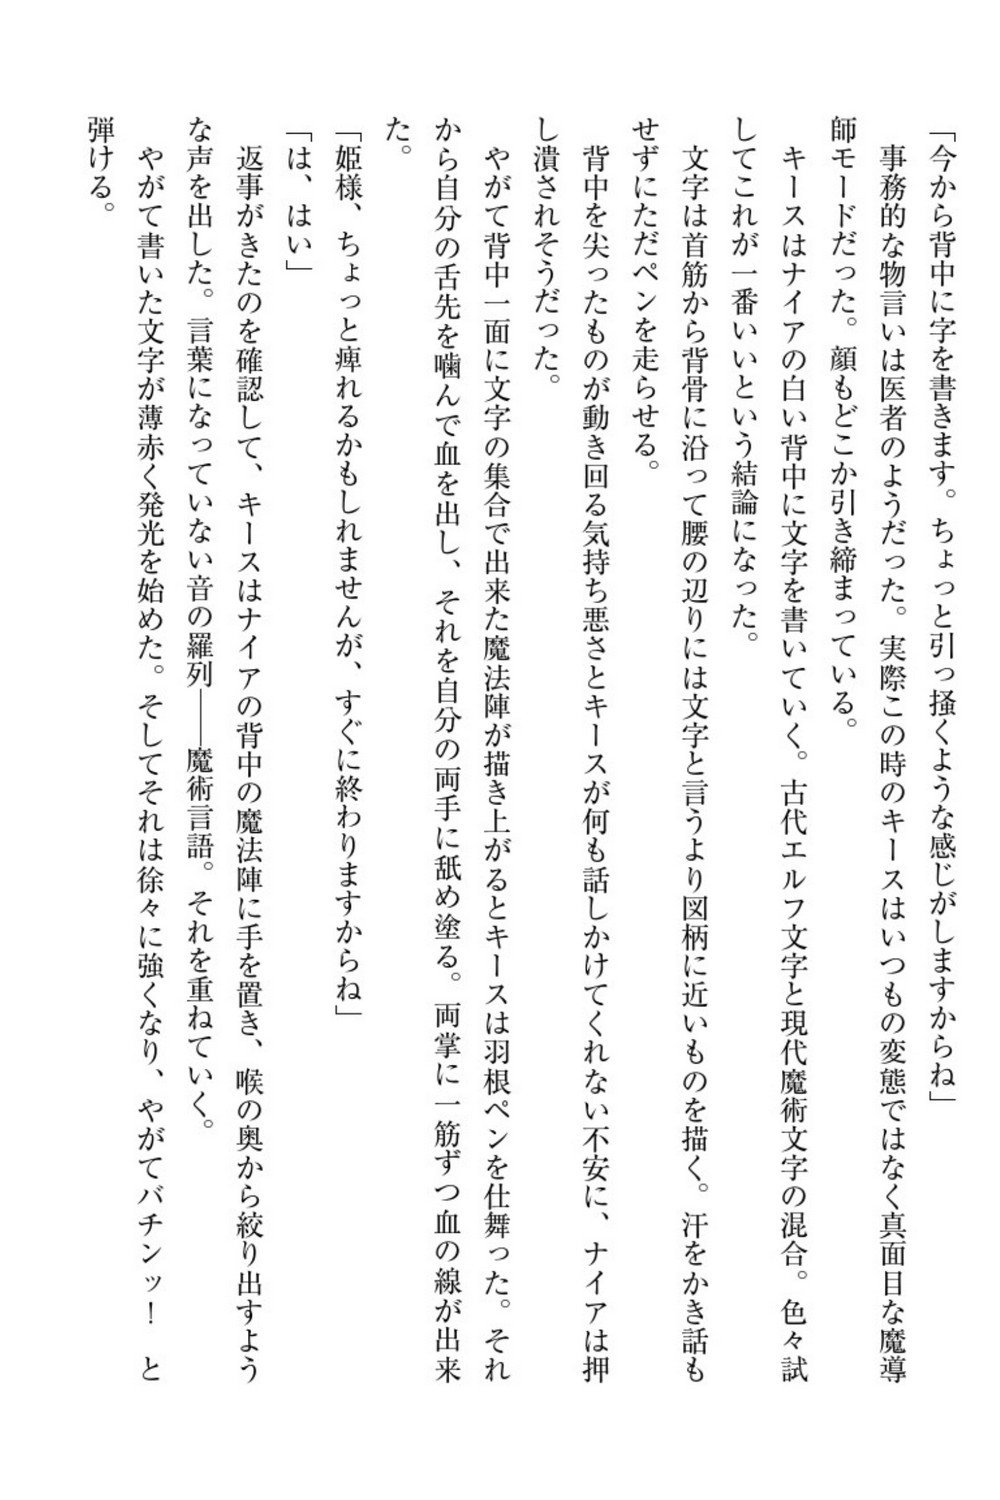 「今から背中に字を書きます。ちょっと引っ掻くような感じがしますからね」
　事務的な物言いは医者のようだった。実際この時のキースはいつもの変態ではなく真面目な魔導
師モードだった。顔もどこか引き締まっている。
　キースはナイアの白い背中に文字を書いていく。古代エルフ文字と現代魔術文字の混合。色々試
してこれが一番いいという結論になった。
　文字は首筋から背骨に沿って腰の辺りには文字と言うより図柄に近いものを描く。汗をかき話も
せずにただペンを走らせる。
　背中を尖ったものが動き回る気持ち悪さとキースが何も話しかけてくれない不安に、ナイアは押
し潰されそうだった。
　やがて背中一面に文字の集合で出来た魔法陣が描き上がるとキースは羽根ペンを仕舞った。それ
から自分の舌先を噛んで血を出し、それを自分の両手に舐め塗る。両掌に一筋ずつ血の線が出来
た。
「姫様、ちょっと痺れるかもしれませんが、すぐに終わりますからね」
「は、はい」
　返事がきたのを確認して、キースはナイアの背中の魔法陣に手を置き、喉の奥から絞り出すよう
な声を出した。言葉になっていない音の羅列――魔術言語。それを重ねていく。
　やがて書いた文字が薄赤く発光を始めた。そしてそれは徐々に強くなり、やがてバチンッ！　と
弾ける。